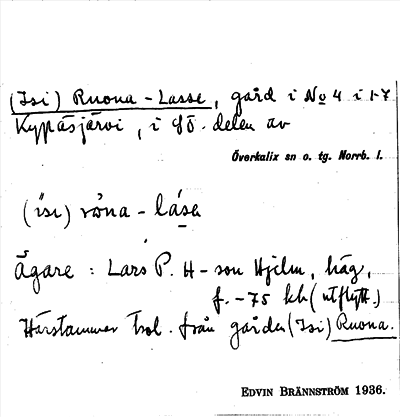 (Isi) Ruona-Lasse, gård i No 4 i 1-7
Kypäsjärvi, i SÖ. delen av
Överkalix sn o. tg. Norrb. l.
(ı̄sı) rōna-lása
Ägare: Lars P. H-son Hjelm, häg,
f. -75 kh (utflytt.)
Härstammar trol. från gården (Isi) Ruona.
EDVIN BRÄNNSTRÖM 1936.